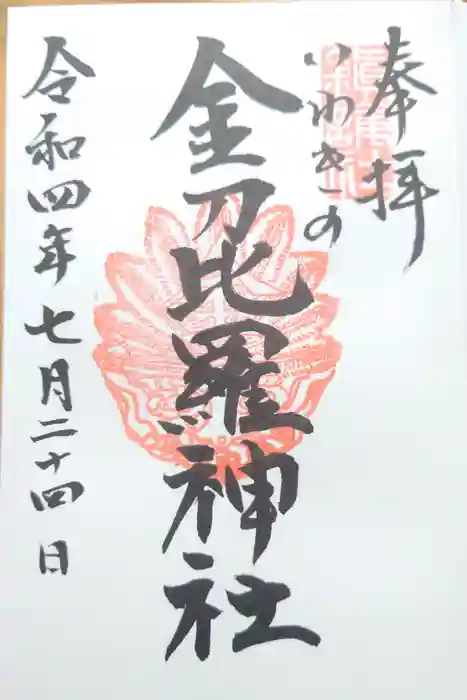 奉拝
いわきの
金刀比羅神社
令和四年七月二十四日